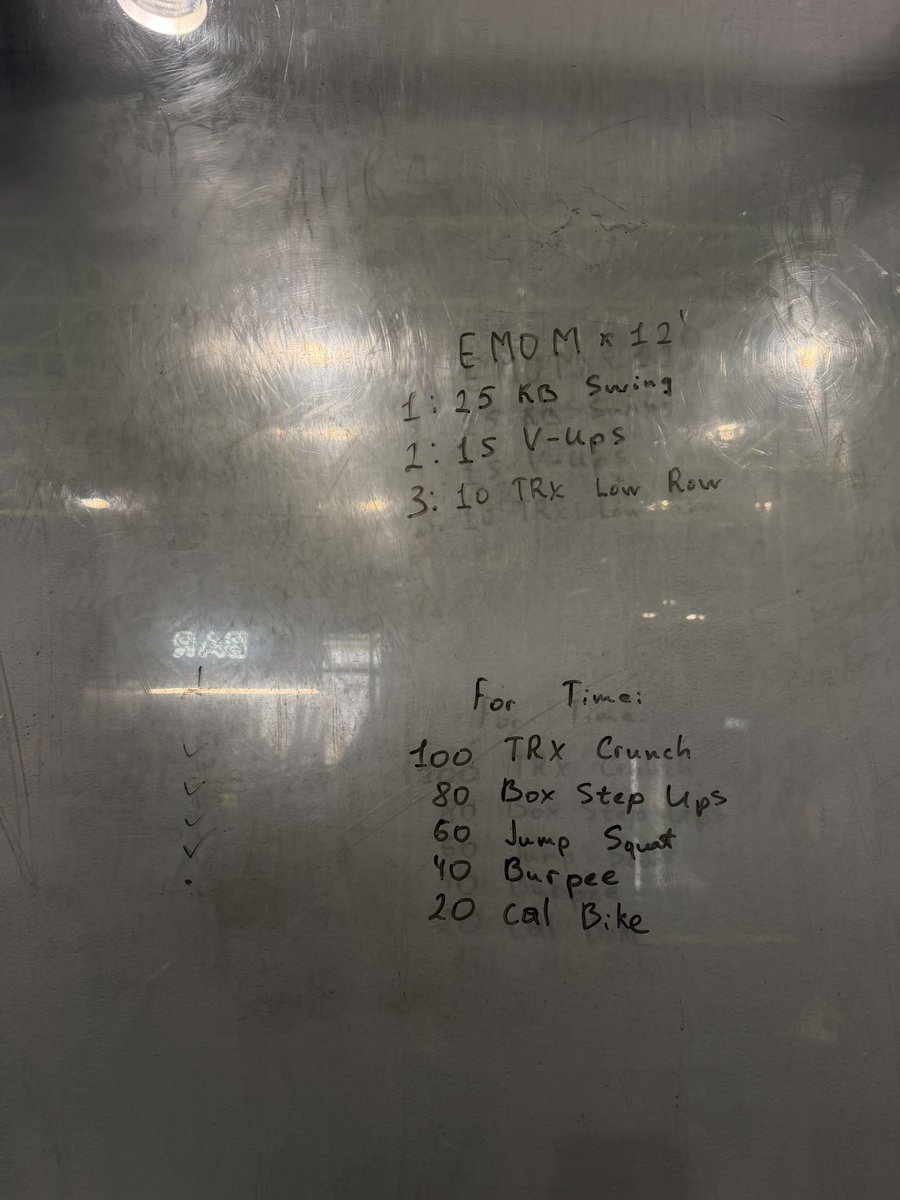 EMOM x 12'
1: 25 KB Swing
2: 15 V-Ups
3: 10 TRX Low Row
For Time:
100 TRX Crunch
80 Box Step Ups
60 Jump Squat
40 Burpee
20 Cal Bike